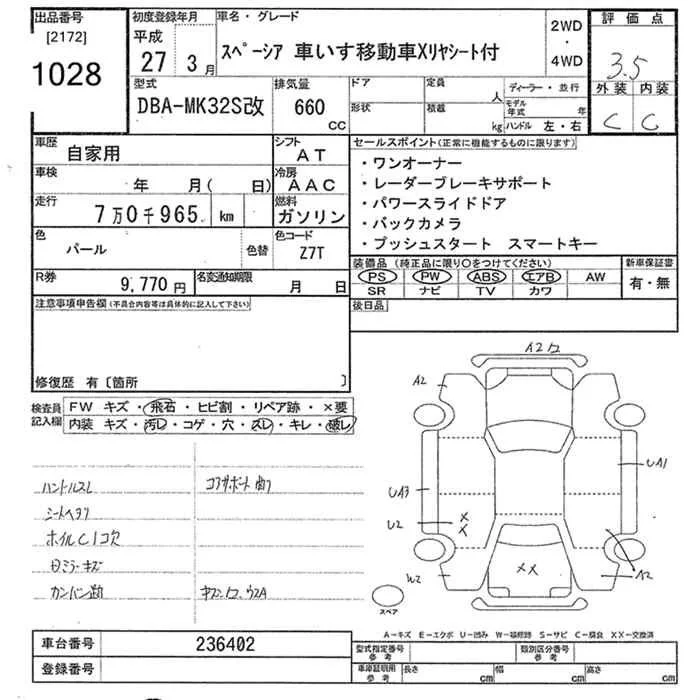 出品番号
[2172]
1028
初度登録年月
平成
27 3月
車名・グレード
スペーシア 車いす移動車Xリヤシート付
2WD
・
4WD
評価点
3.5
外装 内装
C C
型式
DBA-MK32S改
排気量
660
CC
ドア
定員
人
形状
積載
kg
ディーラー・並行
モデル年式 年
ハンドル 左・右
車歴
自家用
シフト
AT
車検
年 月( 日)
冷房
AAC
走行
7万0千965 km
燃料
ガソリン
色
パール
色替
色コード
Z7T
R券
9,770円
名変通知期限
月 日
セールスポイント(正常に機能するものに限ります)
・ワンオーナー
・レーダーブレーキサポート
・パワースライドドア
・バックカメラ
・プッシュスタート スマートキー
装備品(純正品に限り○をつけてください)
PS PW ABS エアB AW
SR ナビ TV カワ
新車保証書
有・無
注意事項申告欄(不具合内容等は具体的に記入して下さい)
後日品
修復歴 有〔箇所 〕
検査員記入欄
FW キズ・飛石・ヒビ割・リペア跡・×要
内装 キズ・汚レ・コゲ・穴・スレ・キレ・破レ
ハンドルスレ
シートヘタリ
ホイルC1コ欠
カンバン跡
A2
A2
UA1
UA3
U2
X
X
XX
W2
A2
スペア
A-キズ E-エクボ U-凹み W-補修跡 S-サビ C-腐食 XX-交換済
車台番号
236402
登録番号
型式指定番号
参考
類別区分番号
参考
車庫証明用
参考
長さ cm
幅 cm
高さ cm